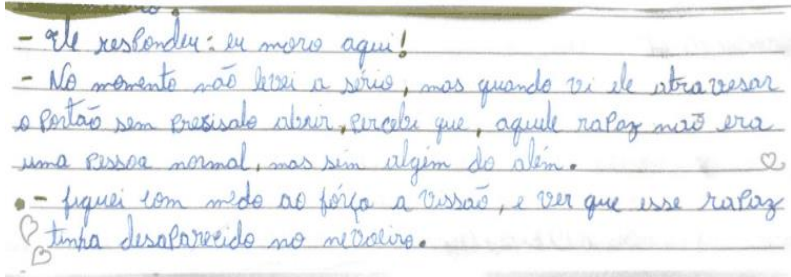 - Ele respondeu: eu moro aqui!
- No momento não levei a sério, mas quando vi ele atravesar
o portão sem presisalo abrir, percebi que, aquele rapaz não era
uma pessoa normal, mas sim algém do além.
- fiquei com medo ao fórça a vissão, e ver que esse rapaz
tinha desaparecido no nevoeiro.